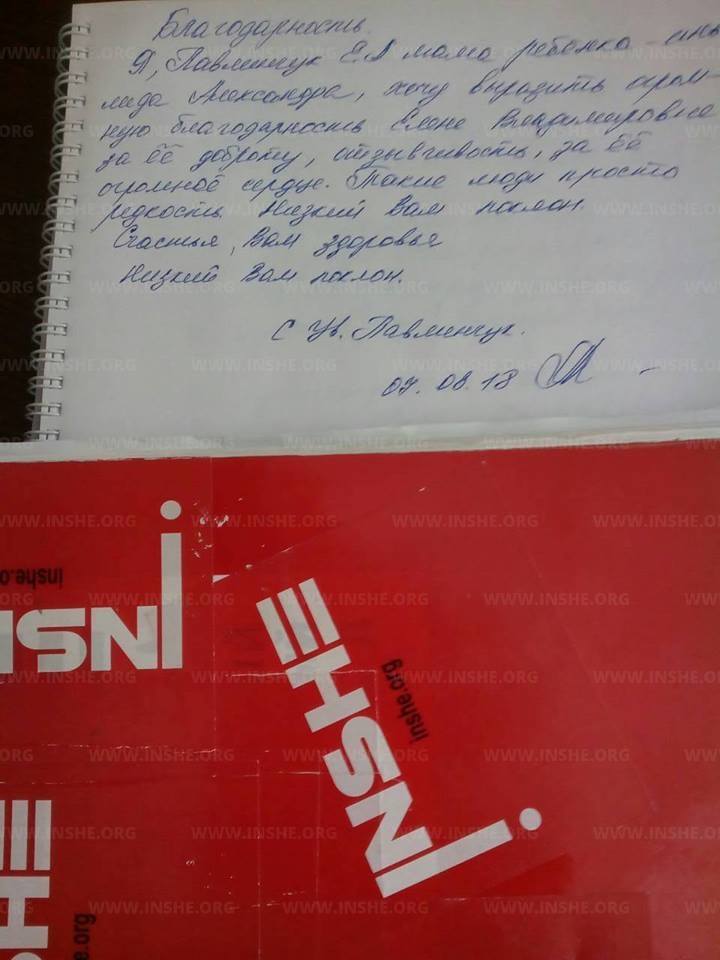 Благодарность.
Я, Павлинчук Е.А мама ребёнка – инва
лида Александра, хочу выразить огром-
ную благодарность Елене Владимировне
за её доброту, отзывчивость, за её
огромное сердце. Такие люди просто
редкость. Низкий Вам поклон.
Счастья, Вам здоровья
Низкий Вам поклон.
С Ув. Павлинчук.
07.08.18
INSHE
inshe.org
INSHE
inshe.org
SHE
e.org
WWW.INSHE.ORG